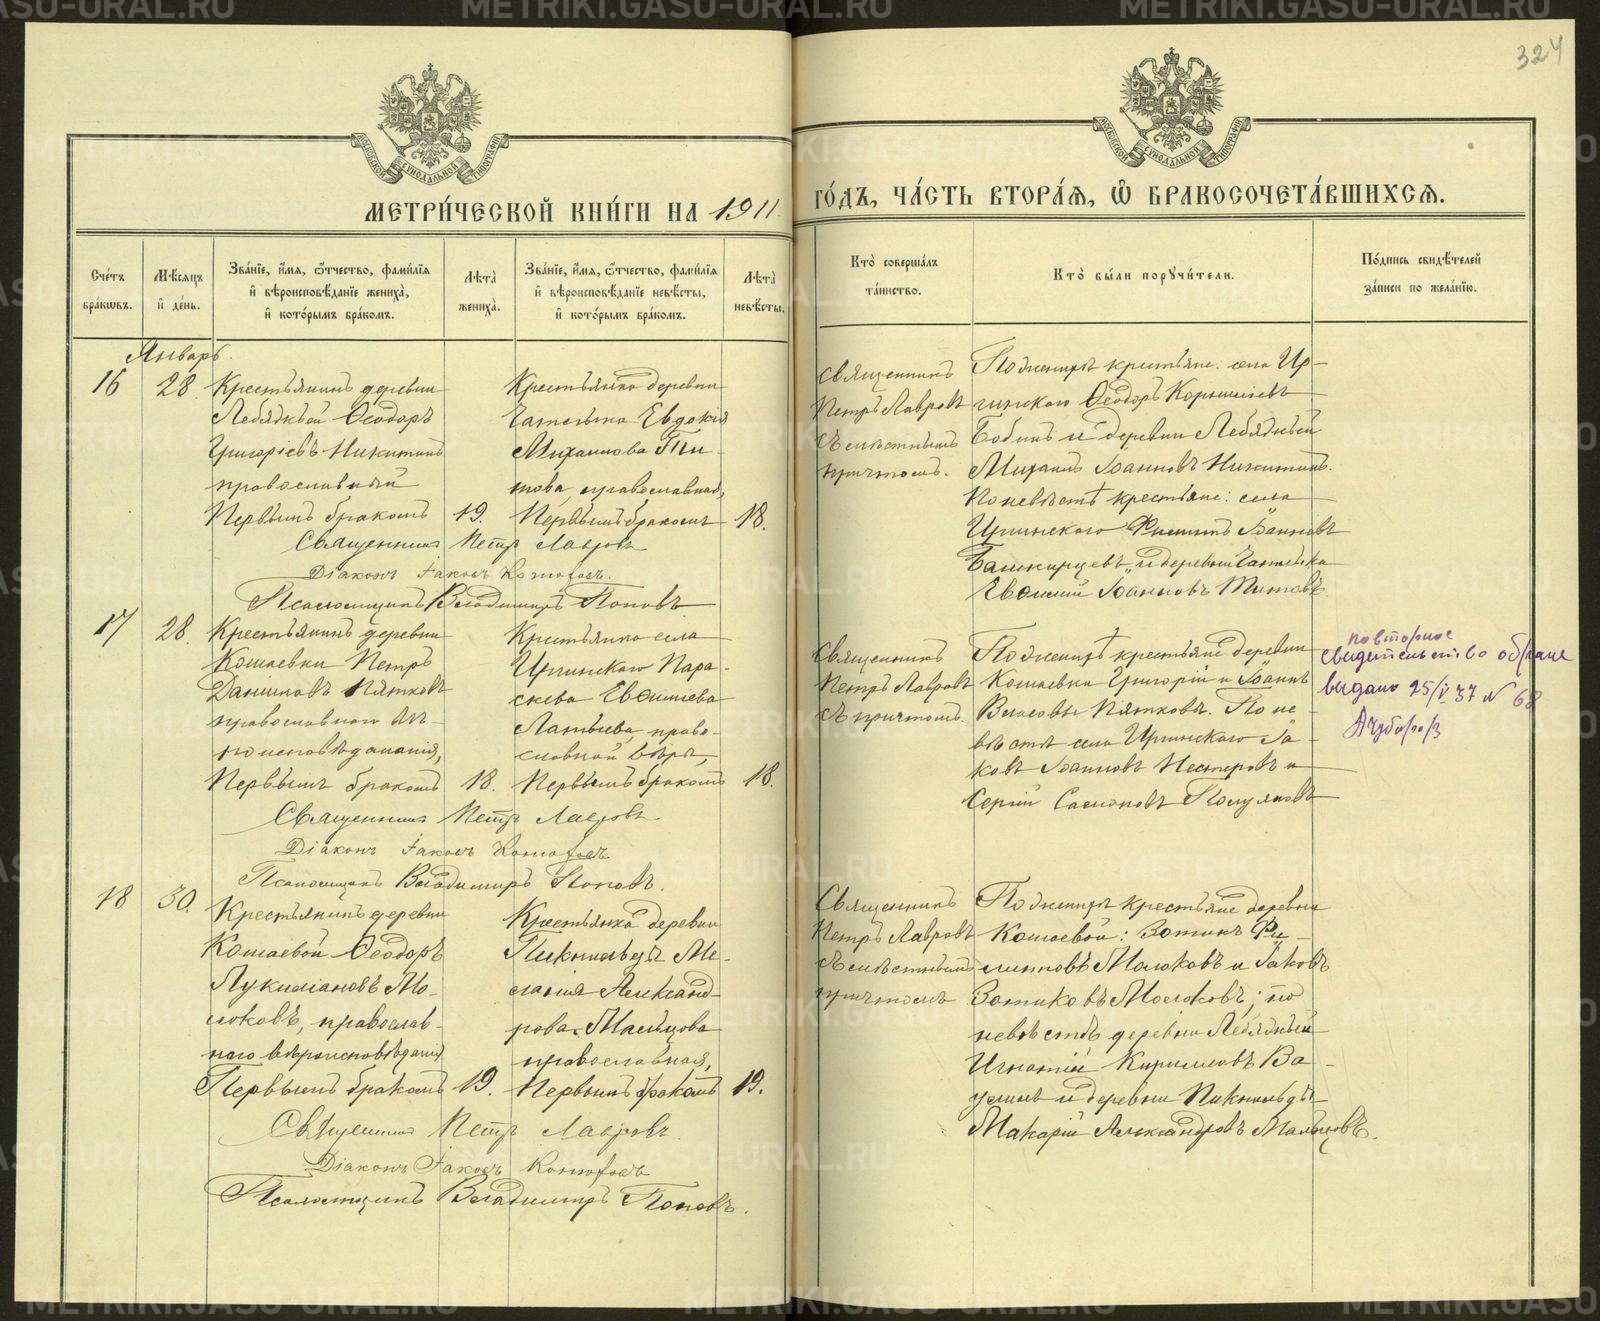 324
МЕТРИ́ЧЕСКОЙ КНИ́ГИ НА 1911
ГО́ДЪ, ЧА́СТЬ ВТОРА́Я, Ѿ БРАКОСОЧЕТА́ВШИХСЯ.
Сче́тъ бра́кѡвъ.
Мѣ́сяцъ и҆ де́нь.
Зва́нїе, и҆́мя, ѻ҆́тчество, фами́лїя и҆ вѣроисповѣ́данїе жениха̀, и҆ кото́рымъ бра́комъ.
Лѣ́та жениха̀.
Зва́нїе, и҆́мя, ѻ҆́тчество, фами́лїя и҆ вѣроисповѣ́данїе невѣ́сты, и҆ кото́рымъ бра́комъ.
Лѣ́та невѣ́сты.
Кто̀ соверша́лъ та́инство.
Кто̀ бы́ли порꙋчи́тели.
По́дпись свидѣ́телей за́писи по жела́нїю.
Январь.
16
28
Крестьянинъ деревни
Лебяжьей Ѳеодоръ
Григоріевъ Никитинъ
православный
Первымъ бракомъ
19.
Крестьянка деревни
Евдокія
Михаилова Ти-
това, православная,
Первымъ бракомъ
18.
Священникъ
Петръ Лавровъ
съ мѣстнымъ
причтомъ.
По женихѣ крестьяне: села Ир-
гинского Ѳеодоръ
и деревни Лебяжьей
Михаилъ Іоанновъ Никитинъ.
По невѣстѣ крестьяне: села
Иргинского Филиппъ Іоанновъ
Башкирцевъ, и деревни
Евѳимій Іоанновъ Титовъ
Священникъ Петръ Лавровъ
Діаконъ Іаковъ
Псаломщикъ Владимиръ Поповъ
17
28
Крестьянинъ деревни
Кошаевки Петръ
Данииловъ Пятковъ
православного вѣ-
роисповѣданія,
Первымъ бракомъ
18.
Крестьянка села
Иргинского Пара-
скева Евѳиміева
Латыева, право-
славной вѣры,
Первымъ бракомъ
18.
Священникъ
Петръ Лавровъ
съ причтомъ.
По женихѣ крестьяне деревни
Кошаевки Григорій и Іоаннъ
Власовы Пятковъ. По не-
вѣстѣ села Иргинского Іа-
ковъ Іоанновъ Нестеровъ и
Сергій Полуяновъ
повторное
свидетельство о браке
выдано 25/V 37 N 68
Священникъ Петръ Лавровъ
Діаконъ Іаковъ
Псаломщикъ Владимиръ Поповъ.
18
30.
Крестьянинъ деревни
Кошаевой Ѳеодоръ
Лукіяновъ Мо-
локовъ, православ-
наго вѣроисповѣданія
Первымъ бракомъ
19.
Крестьянка деревни
Ме-
ланія Александ-
рова Мальцова
православная,
Первымъ бракомъ
19.
Священникъ
Петръ Лавровъ
съ мѣстнымъ
причтомъ
По женихѣ крестьяне деревни
Кошаевой: Зотикъ Фи-
липповъ Молоковъ и Іаковъ
Зотиковъ Молоковъ; по
невѣстѣ деревни Лебяжьей
Игнатій Кирилловъ Ва-
и деревни
Макарій Александровъ Мальцовъ.
Священникъ Петръ Лавровъ.
Діаконъ Іаковъ
Псаломщикъ Владимиръ Поповъ.
METRIKI.GASO-URAL.RU